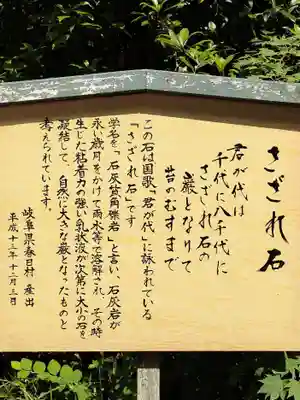 さざれ石
君が代は
千代に八千代に
さざれ石の
巌となりて
苔のむすまで
この石は国歌「君が代」に詠われている
「さざれ石」です
学名を「石灰質角礫岩」と言い、石灰岩が
永い歳月をかけて雨水等で溶解され、その時
生じた粘着力の強い乳状液が次第に大小の石を
凝結して、自然に大きな巌となったものと
考えられています。
岐阜県春日村 産出
平成十二年十二月三日